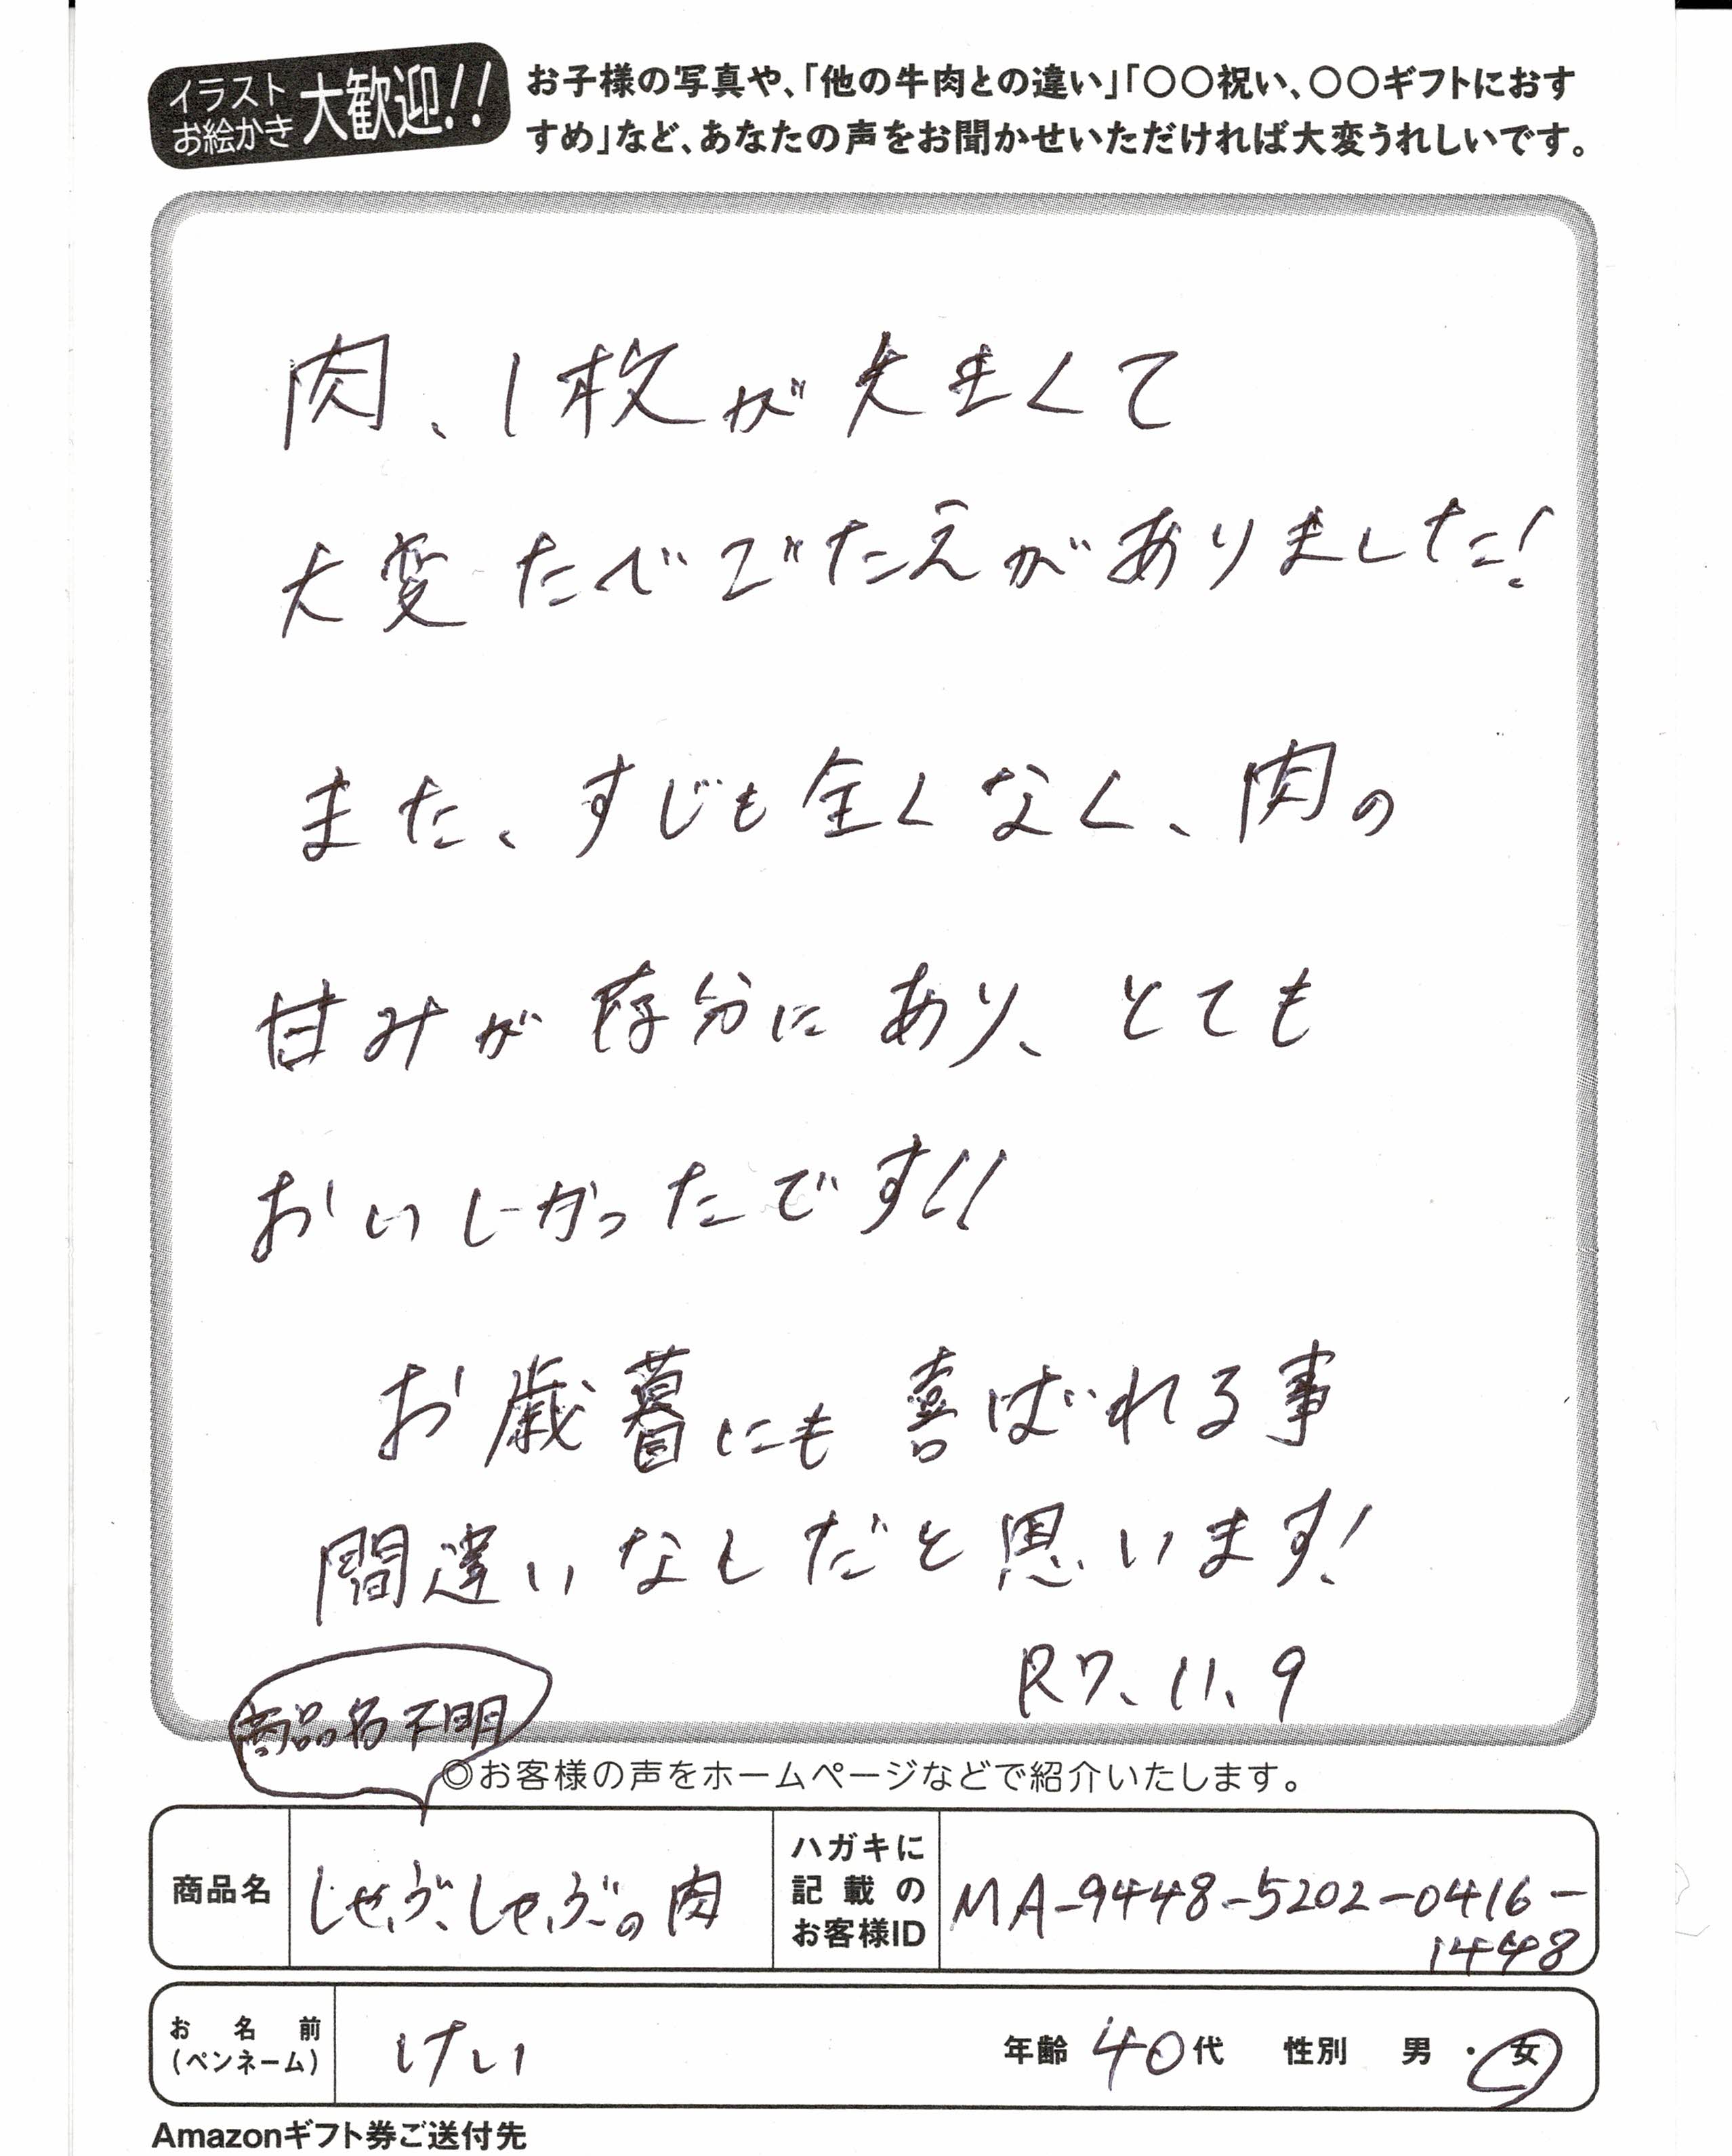 イラスト
お絵かき
大歓迎!!
お子様の写真や、「他の牛肉との違い」「〇〇祝い、〇〇ギフトにおす
すめ」など、あなたの声をお聞かせいただければ大変うれしいです。
肉、1枚が大きくて
大変たべごたえがありました!
また、すじも全くなく、肉の
甘みが存分にあり、とても
おいしかったです!!
お歳暮にも喜ばれる事
間違いなしだと思います!
R7.11.9
商品名不明
◎お客様の声をホームページなどで紹介いたします。
商品名
しゃぶしゃぶの肉
ハガキに
記載の
お客様ID
MA-9448-5202-0416-
1448
お名前
(ペンネーム)
けい
年齢 40代 性別 男・女
Amazonギフト券ご送付先